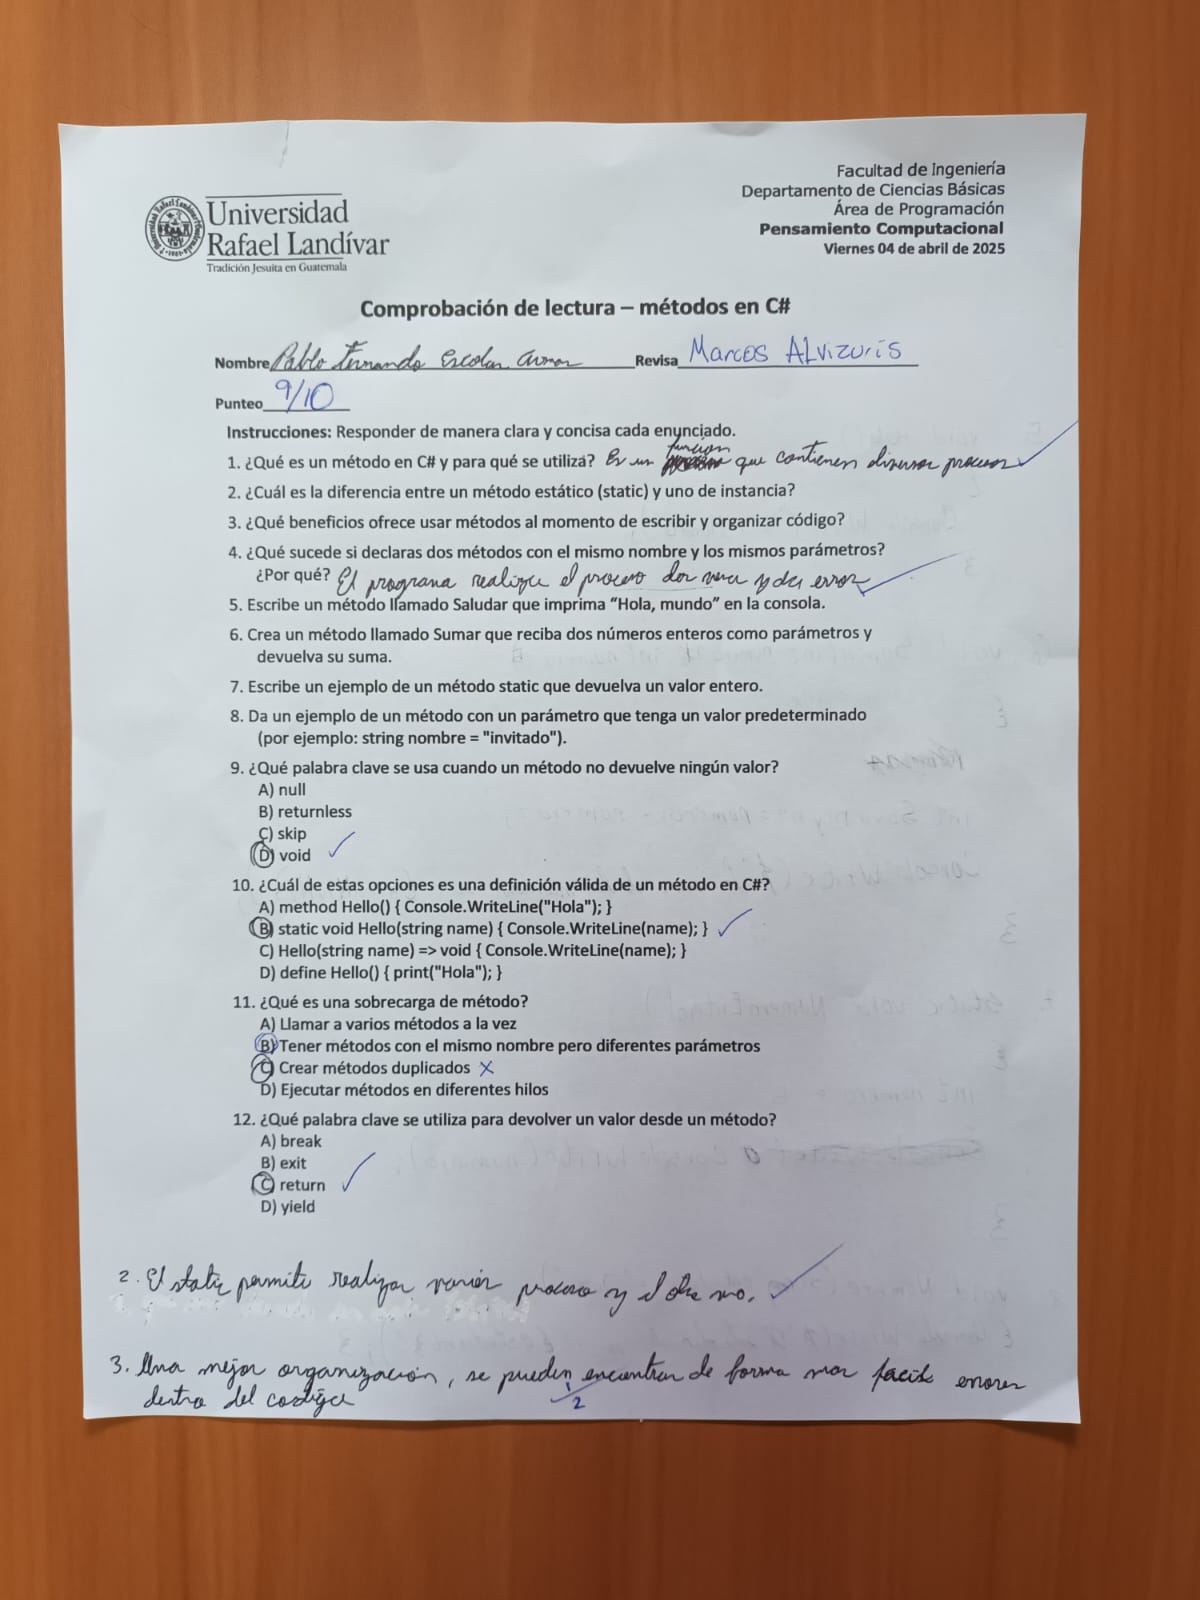 Universidad
Rafael Landívar
Tradición Jesuita en Guatemala
Facultad de Ingeniería
Departamento de Ciencias Básicas
Área de Programación
Pensamiento Computacional
Viernes 04 de abril de 2025
Comprobación de lectura – métodos en C#
Nombre Pablo Fernando Escobar Revisa Marcos ALvizuris
Punteo 9/10
Instrucciones: Responder de manera clara y concisa cada enunciado.
1. ¿Qué es un método en C# y para qué se utiliza? Es un función que contienen diversos procesos
2. ¿Cuál es la diferencia entre un método estático (static) y uno de instancia?
3. ¿Qué beneficios ofrece usar métodos al momento de escribir y organizar código?
4. ¿Qué sucede si declaras dos métodos con el mismo nombre y los mismos parámetros?
¿Por qué? El programa realiza el proceso dos veces y da error
5. Escribe un método llamado Saludar que imprima “Hola, mundo” en la consola.
6. Crea un método llamado Sumar que reciba dos números enteros como parámetros y
devuelva su suma.
7. Escribe un ejemplo de un método static que devuelva un valor entero.
8. Da un ejemplo de un método con un parámetro que tenga un valor predeterminado
(por ejemplo: string nombre = "invitado").
9. ¿Qué palabra clave se usa cuando un método no devuelve ningún valor?
A) null
B) returnless
C) skip
D) void
10. ¿Cuál de estas opciones es una definición válida de un método en C#?
A) method Hello() { Console.WriteLine("Hola"); }
B) static void Hello(string name) { Console.WriteLine(name); }
C) Hello(string name) => void { Console.WriteLine(name); }
D) define Hello() { print("Hola"); }
11. ¿Qué es una sobrecarga de método?
A) Llamar a varios métodos a la vez
B) Tener métodos con el mismo nombre pero diferentes parámetros
C) Crear métodos duplicados
D) Ejecutar métodos en diferentes hilos
12. ¿Qué palabra clave se utiliza para devolver un valor desde un método?
A) break
B) exit
C) return
D) yield
2. El static permite realizar varios proceso y el otro no.
3. Una mejor organización, se pueden encontrar de forma mas facil errores
dentro del
1/2